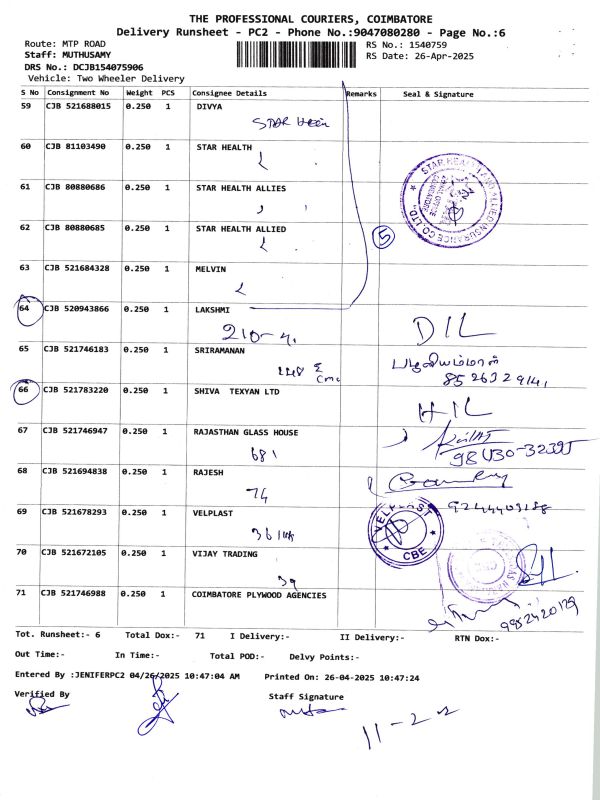 THE PROFESSIONAL COURIERS, COIMBATORE
Delivery Runsheet - PC2 - Phone No.:9047080280 - Page No.:6
Route: MTP ROAD
RS No.: 1540759
Staff: MUTHUSAMY
RS Date: 26-Apr-2025
DRS No.: DCJB154075906
Vehicle: Two Wheeler Delivery
S No Consignment No Weight PCS Consignee Details Remarks Seal & Signature
59 CJB 521688015 0.250 1 DIVYA
STAR
60 CJB 81103490 0.250 1 STAR HEALTH
61 CJB 80880686 0.250 1 STAR HEALTH ALLIES
STAR HEALTH AND ALLIED INSURANCE CO.LTD.
62 CJB 80880685 0.250 1 STAR HEALTH ALLIED
5
63 CJB 521684328 0.250 1 MELVIN
64 CJB 520943866 0.250 1 LAKSHMI
DIL
65 CJB 521746183 0.250 1 SRIRAMANAN
பழனியம்மாள்
66 CJB 521783220 0.250 1 SHIVA TEXYAN LTD
HIL
67 CJB 521746947 0.250 1 RAJASTHAN GLASS HOUSE
681
68 CJB 521694838 0.250 1 RAJESH
74
69 CJB 521678293 0.250 1 VELPLAST
VELPLAST
CBE
70 CJB 521672105 0.250 1 VIJAY TRADING
39
71 CJB 521746988 0.250 1 COIMBATORE PLYWOOD AGENCIES
Tot. Runsheet:- 6 Total Dox:- 71 I Delivery:- II Delivery:- RTN Dox:-
Out Time:- In Time:- Total POD:- Delvy Points:-
Entered By :JENIFERPC2 04/26/2025 10:47:04 AM Printed On: 26-04-2025 10:47:24
Verified By Staff Signature